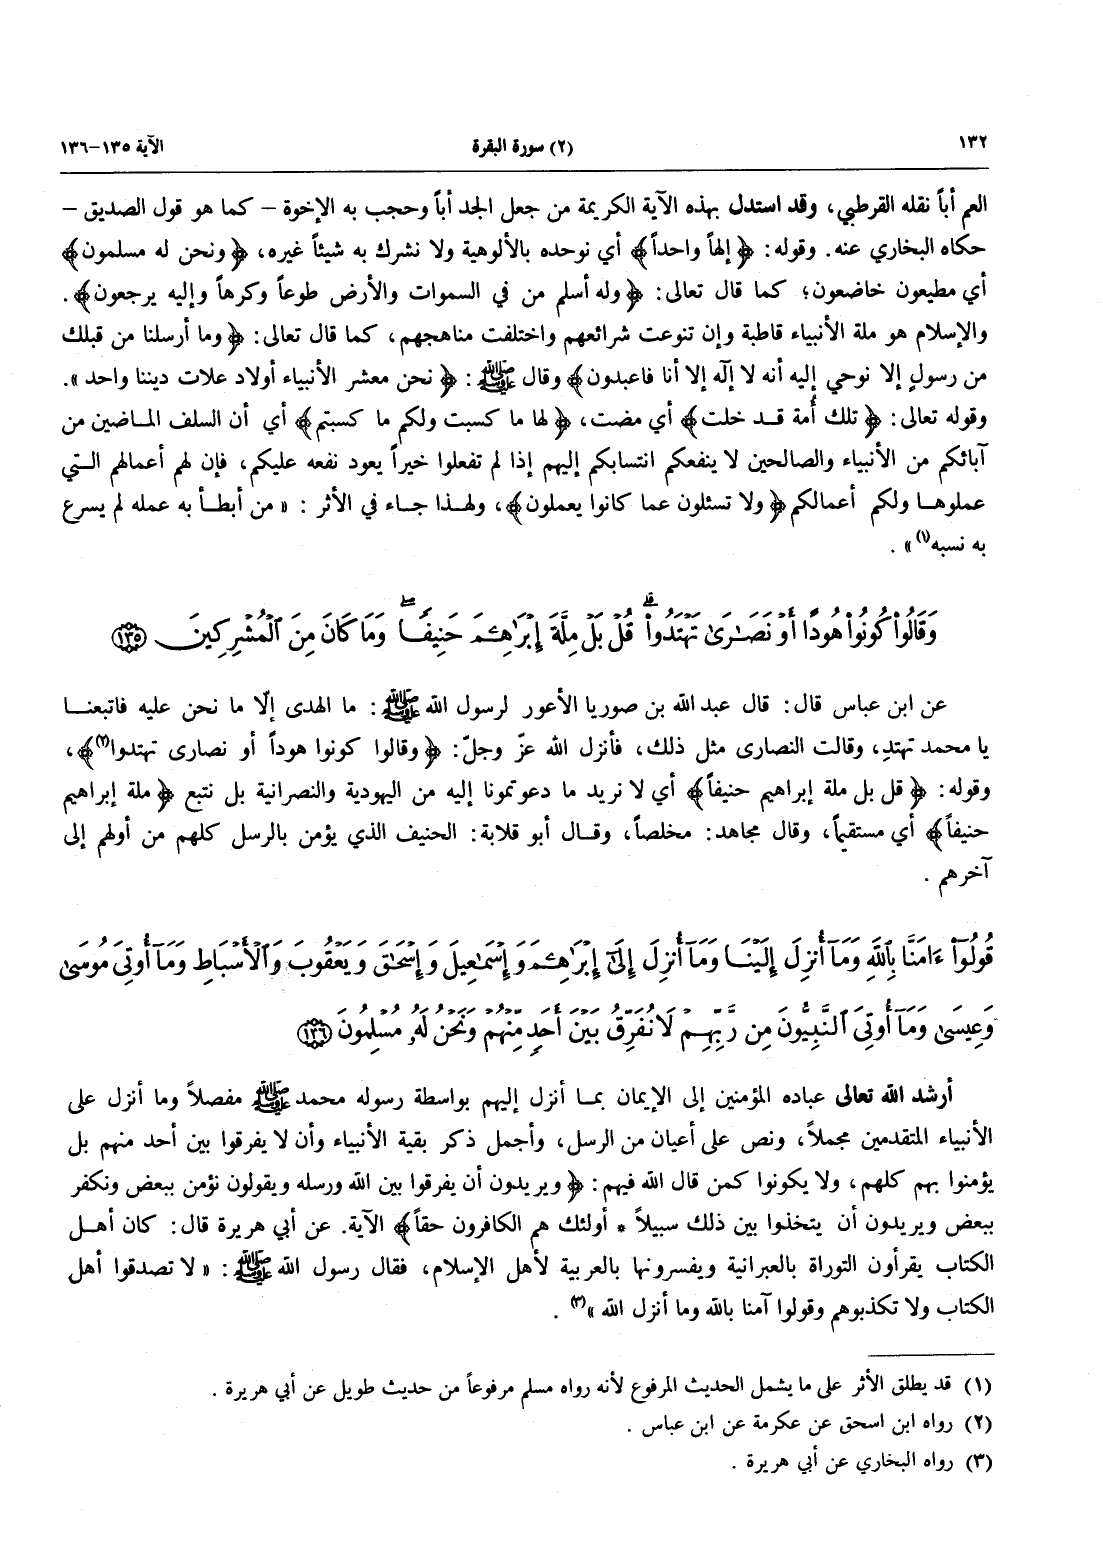 ١٣٢ (٢) سورة البقرة الآية ١٣٥–١٣٦
العم أباً نقله القرطبي، وقد استدل بهذه الآية الكريمة من جعل الجد أباً وحجب به الإخوة – كما هو قول الصديق –
حكاه البخاري عنه. وقوله: ﴿إلهاً واحداً﴾ أي نوحده بالألوهية ولا نشرك به شيئاً غيره، ﴿ونحن له مسلمون﴾
أي مطيعون خاضعون؛ كما قال تعالى: ﴿وله أسلم من في السموات والأرض طوعاً وكرهاً وإليه يرجعون﴾.
والإسلام هو ملة الأنبياء قاطبة وإن تنوعت شرائعهم واختلفت مناهجهم، كما قال تعالى: ﴿وما أرسلنا من قبلك
من رسولٍ إلا نوحي إليه أنه لا إلٰه إلا أنا فاعبدون﴾ وقال ﷺ: ﴿نحن معشر الأنبياء أولاد علات ديننا واحد».
وقوله تعالى: ﴿تلك أمة قد خلت﴾ أي مضت، ﴿لها ما كسبت ولكم ما كسبتم﴾ أي أن السلف الماضين من
آبائكم من الأنبياء والصالحين لا ينفعكم انتسابكم إليهم إذا لم تفعلوا خيراً يعود نفعه عليكم، فإن لهم أعمالهم التي
عملوها ولكم أعمالكم ﴿ولا تسئلون عما كانوا يعملون﴾، ولهذا جاء في الأثر: «من أبطأ به عمله لم يسرع
به نسبه(١)».
وَقَالُوا۟ كُونُوا۟ هُودًا أَوْ نَصَٰرَىٰ تَهْتَدُوا۟ ۗ قُلْ بَلْ مِلَّةَ إِبْرَٰهِـۧمَ حَنِيفًا ۖ وَمَا كَانَ مِنَ ٱلْمُشْرِكِينَ ﴿١٣٥﴾
عن ابن عباس قال: قال عبد الله بن صوريا الأعور لرسول الله ﷺ: ما الهدى إلّا ما نحن عليه فاتبعنا
يا محمد تهتدِ، وقالت النصارى مثل ذلك، فأنزل الله عزّ وجلّ: ﴿وقالوا كونوا هوداً أو نصارى تهتدوا(٢)﴾،
وقوله: ﴿قل بل ملة إبراهيم حنيفاً﴾ أي لا نريد ما دعوتمونا إليه من اليهودية والنصرانية بل نتبع ﴿ملة إبراهيم
حنيفاً﴾ أي مستقيماً، وقال مجاهد: مخلصاً، وقال أبو قلابة: الحنيف الذي يؤمن بالرسل كلهم من أولهم إلى
آخرهم.
قُولُوٓا۟ ءَامَنَّا بِٱللَّهِ وَمَآ أُنزِلَ إِلَيْنَا وَمَآ أُنزِلَ إِلَىٰٓ إِبْرَٰهِـۧمَ وَإِسْمَٰعِيلَ وَإِسْحَٰقَ وَيَعْقُوبَ وَٱلْأَسْبَاطِ وَمَآ أُوتِىَ مُوسَىٰ
وَعِيسَىٰ وَمَآ أُوتِىَ ٱلنَّبِيُّونَ مِن رَّبِّهِمْ لَا نُفَرِّقُ بَيْنَ أَحَدٍ مِّنْهُمْ وَنَحْنُ لَهُۥ مُسْلِمُونَ ﴿١٣٦﴾
أرشد الله تعالى عباده المؤمنين إلى الإيمان بما أنزل إليهم بواسطة رسوله محمد ﷺ مفصلاً وما أنزل على
الأنبياء المتقدمين مجملاً، ونص على أعيان من الرسل، وأجمل ذكر بقية الأنبياء وأن لا يفرقوا بين أحد منهم بل
يؤمنوا بهم كلهم، ولا يكونوا كمن قال الله فيهم: ﴿ويريدون أن يفرقوا بين الله ورسله ويقولون نؤمن ببعض ونكفر
ببعض ويريدون أن يتخذوا بين ذلك سبيلاً * أولئك هم الكافرون حقاً﴾ الآية. عن أبي هريرة قال: كان أهل
الكتاب يقرأون التوراة بالعبرانية ويفسرونها بالعربية لأهل الإسلام، فقال رسول الله ﷺ: «لا تصدقوا أهل
الكتاب ولا تكذبوهم وقولوا آمنا بالله وما أنزل الله»(٣).
(١) قد يطلق الأثر على ما يشمل الحديث المرفوع لأنه رواه مسلم مرفوعاً من حديث طويل عن أبي هريرة.
(٢) رواه ابن اسحق عن عكرمة عن ابن عباس.
(٣) رواه البخاري عن أبي هريرة.